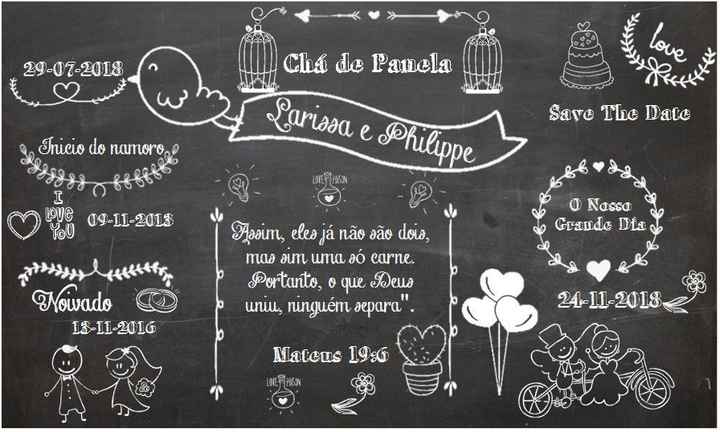 29-07-2018
Chá de Panela
love
Larissa e Philippe
Save The Date
Início do namoro
I
LOVE
YOU
09-11-2013
LOVE POISON
Assim, eles já não são dois,
mas sim uma só carne.
Portanto, o que Deus
uniu, ninguém separa".
Mateus 19:6
LOVE POISON
O Nosso
Grande Dia
24-11-2018
Noivado
13-11-2016